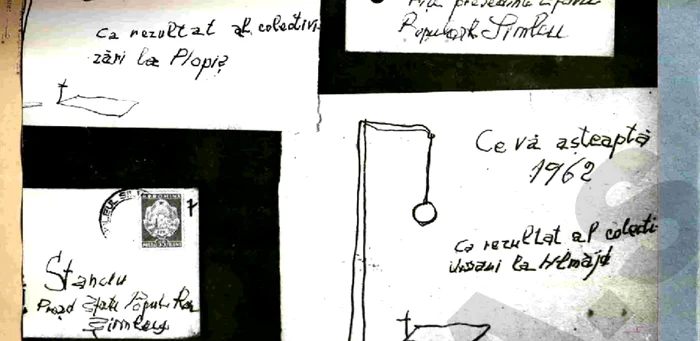 ca rezultat al colectivi
zări la Plopiș
Prin președinte Sfatul
Populară Simleu
Ce vă așteaptă
1962
ca rezultat al colecti
vizării la Hălmăjd
R.P. ROMINA
Stanciu
Presed Sfatu Popular Ra
Simleu